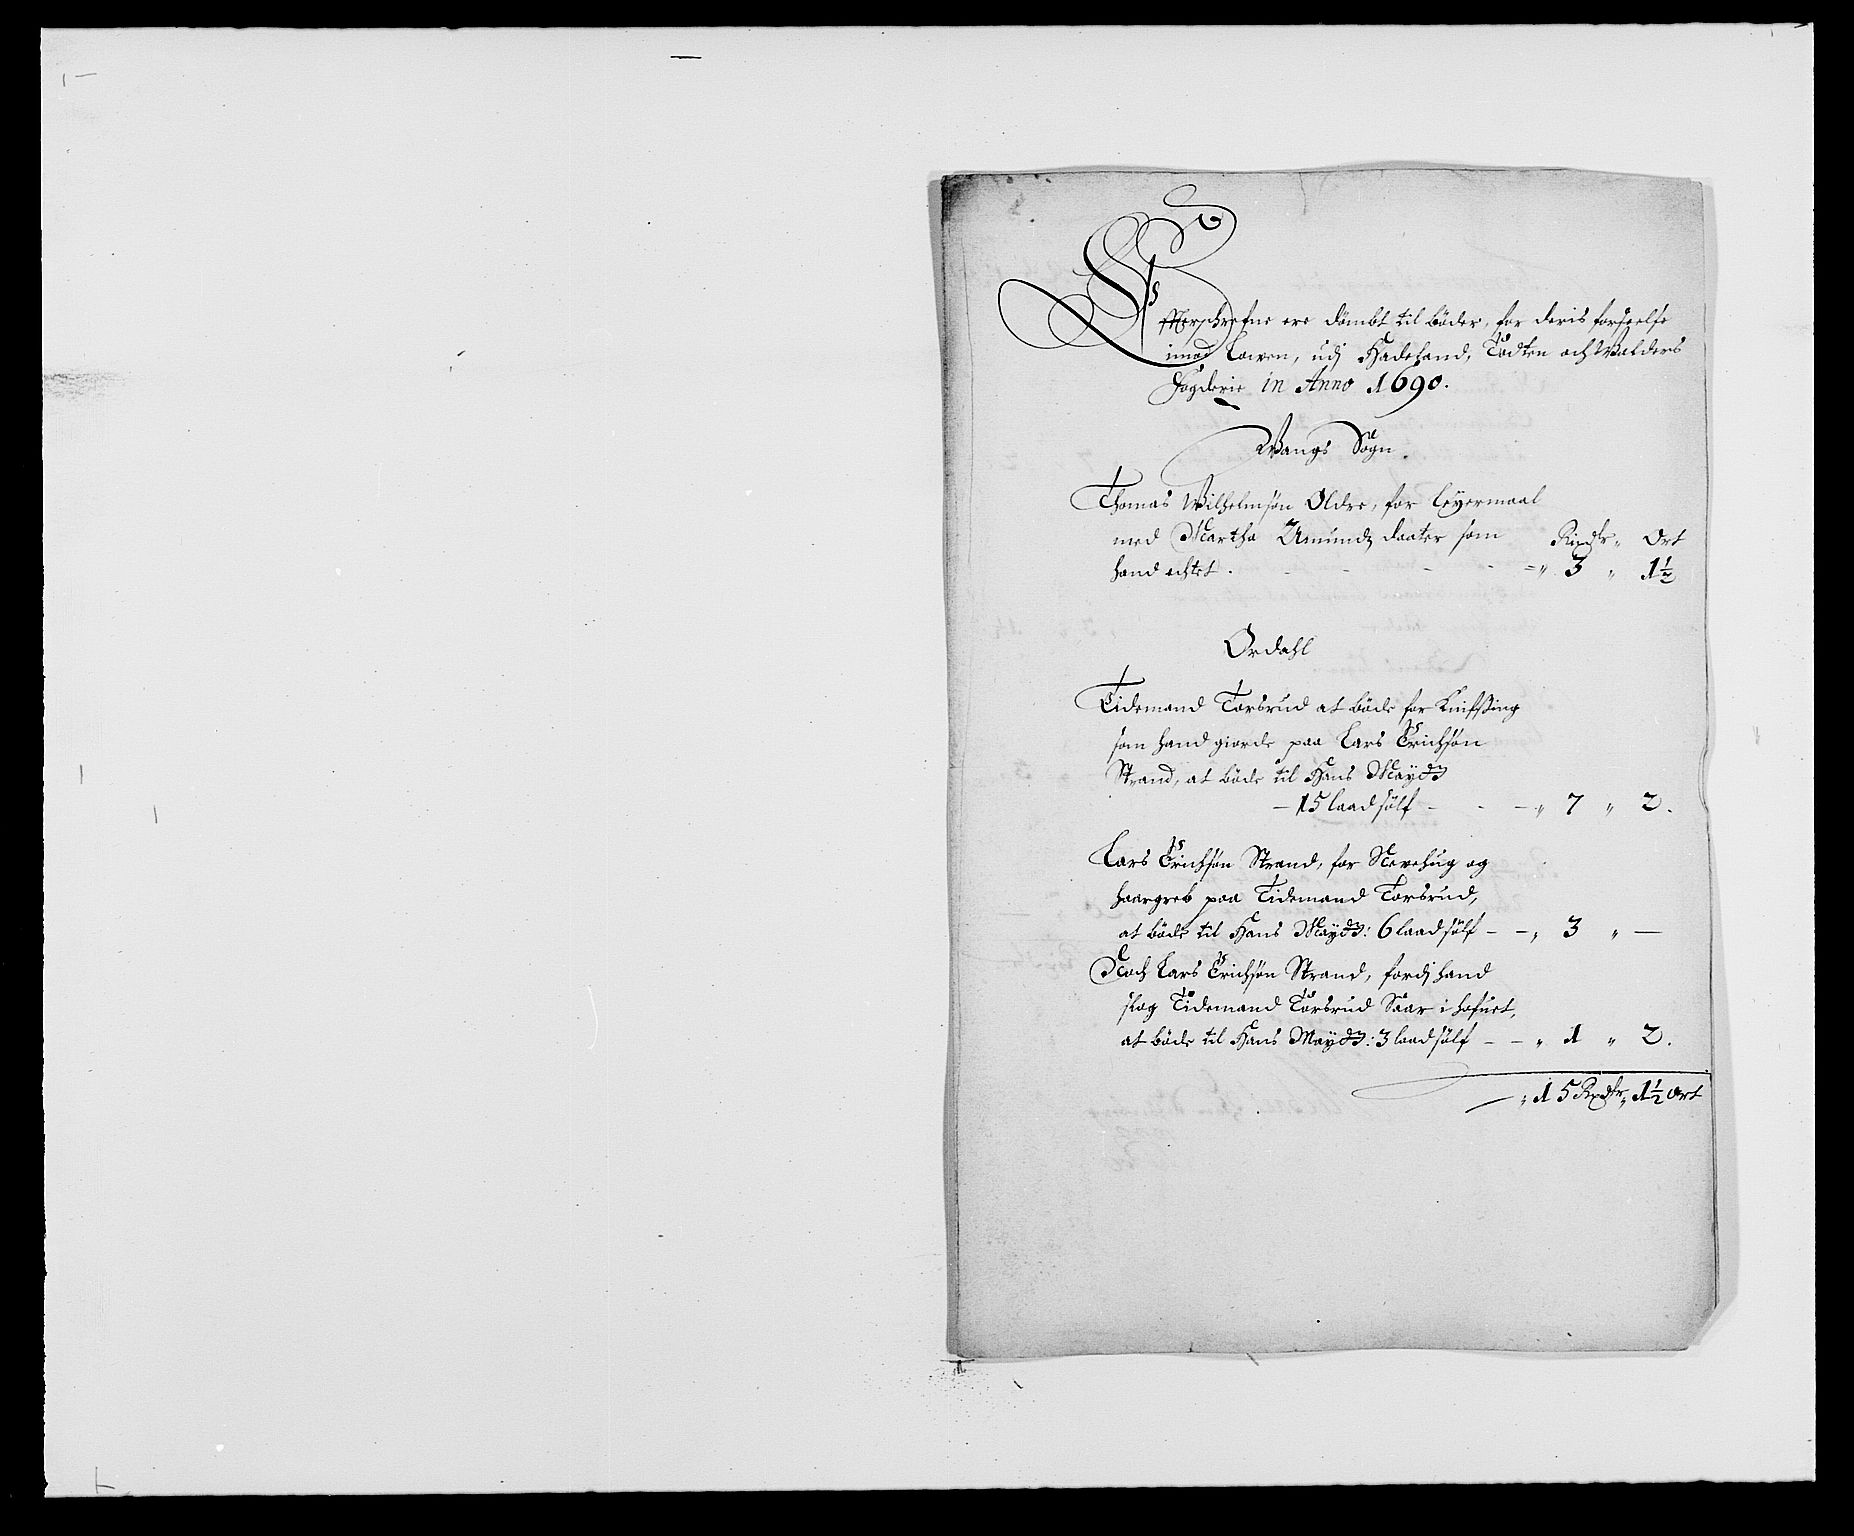 Efterschrefne ere dömbt til böder, for deris forseelse
imod Lowen, udj Hadeland, Todten och Walders
Fogderie in Anno 1690.
Wangs Sogn.
Thomas Wilhelmsøn Oldre, for leyermaal
med Martha Amundz daater som Rixdlr „ Ort
hand echtet. - - - - - =„ 3 „ 1½
Ordahl
Tidemand Torsrud at böde for Knifsting
som hand giorde paa Lars Erichsøn
Strand, at böde til Hans Mayds
– 15 laad sölf - - – „ 7 „ 2.
Lars Erichsøn Strand, for Nevehug og
haargreb paa Tidemand Torsrud,
at böde til Hans Mayds: 6 laad sölf – – „ 3 „ –
Noch Lars Erichsøn Strand, fordj hand
slog Tidemand Torsrud Saar i hofuet,
at böde til Hans Mayds: 3 laad sölf – – „ 1 „ 2.
„ 15 Rixdlr „ 1½ Ort